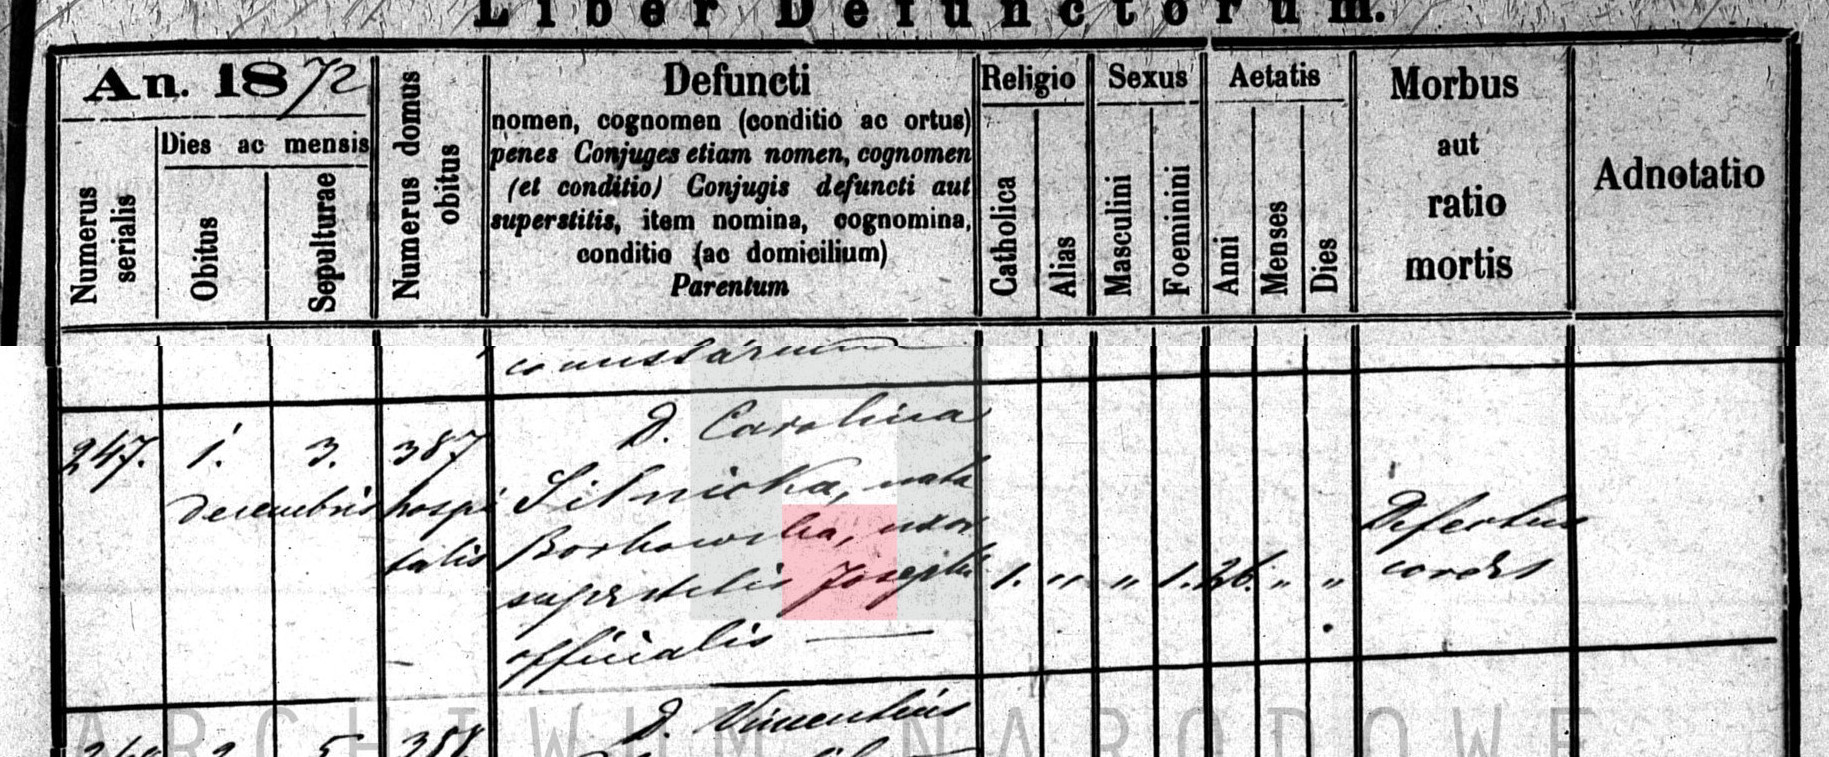 Liber Defunctorum.
An. 1872
Numerus serialis
Dies ac mensis
Obitus
Sepulturae
Numerus domus obitus
Defuncti
nomen, cognomen (conditio ac ortus)
penes Conjuges etiam nomen, cognomen
(et conditio) Conjugis defuncti aut
superstitis, item nomina, cognomina,
conditio (ac domicilium)
Parentum
Religio
Catholica
Alias
Sexus
Masculini
Foeninini
Aetatis
Anni
Menses
Dies
Morbus
aut
ratio
mortis
Adnotatio
247. 1. 3. 387 D. Carolina
Decembris hospi Silnicka, nata
talis Borkowska, uxor
superstitis Josephi 1. " " 1. 26. " "
officialis —
Defectus
cordis
D. Vincentius
358.
ARCHIWUM NARODOWE